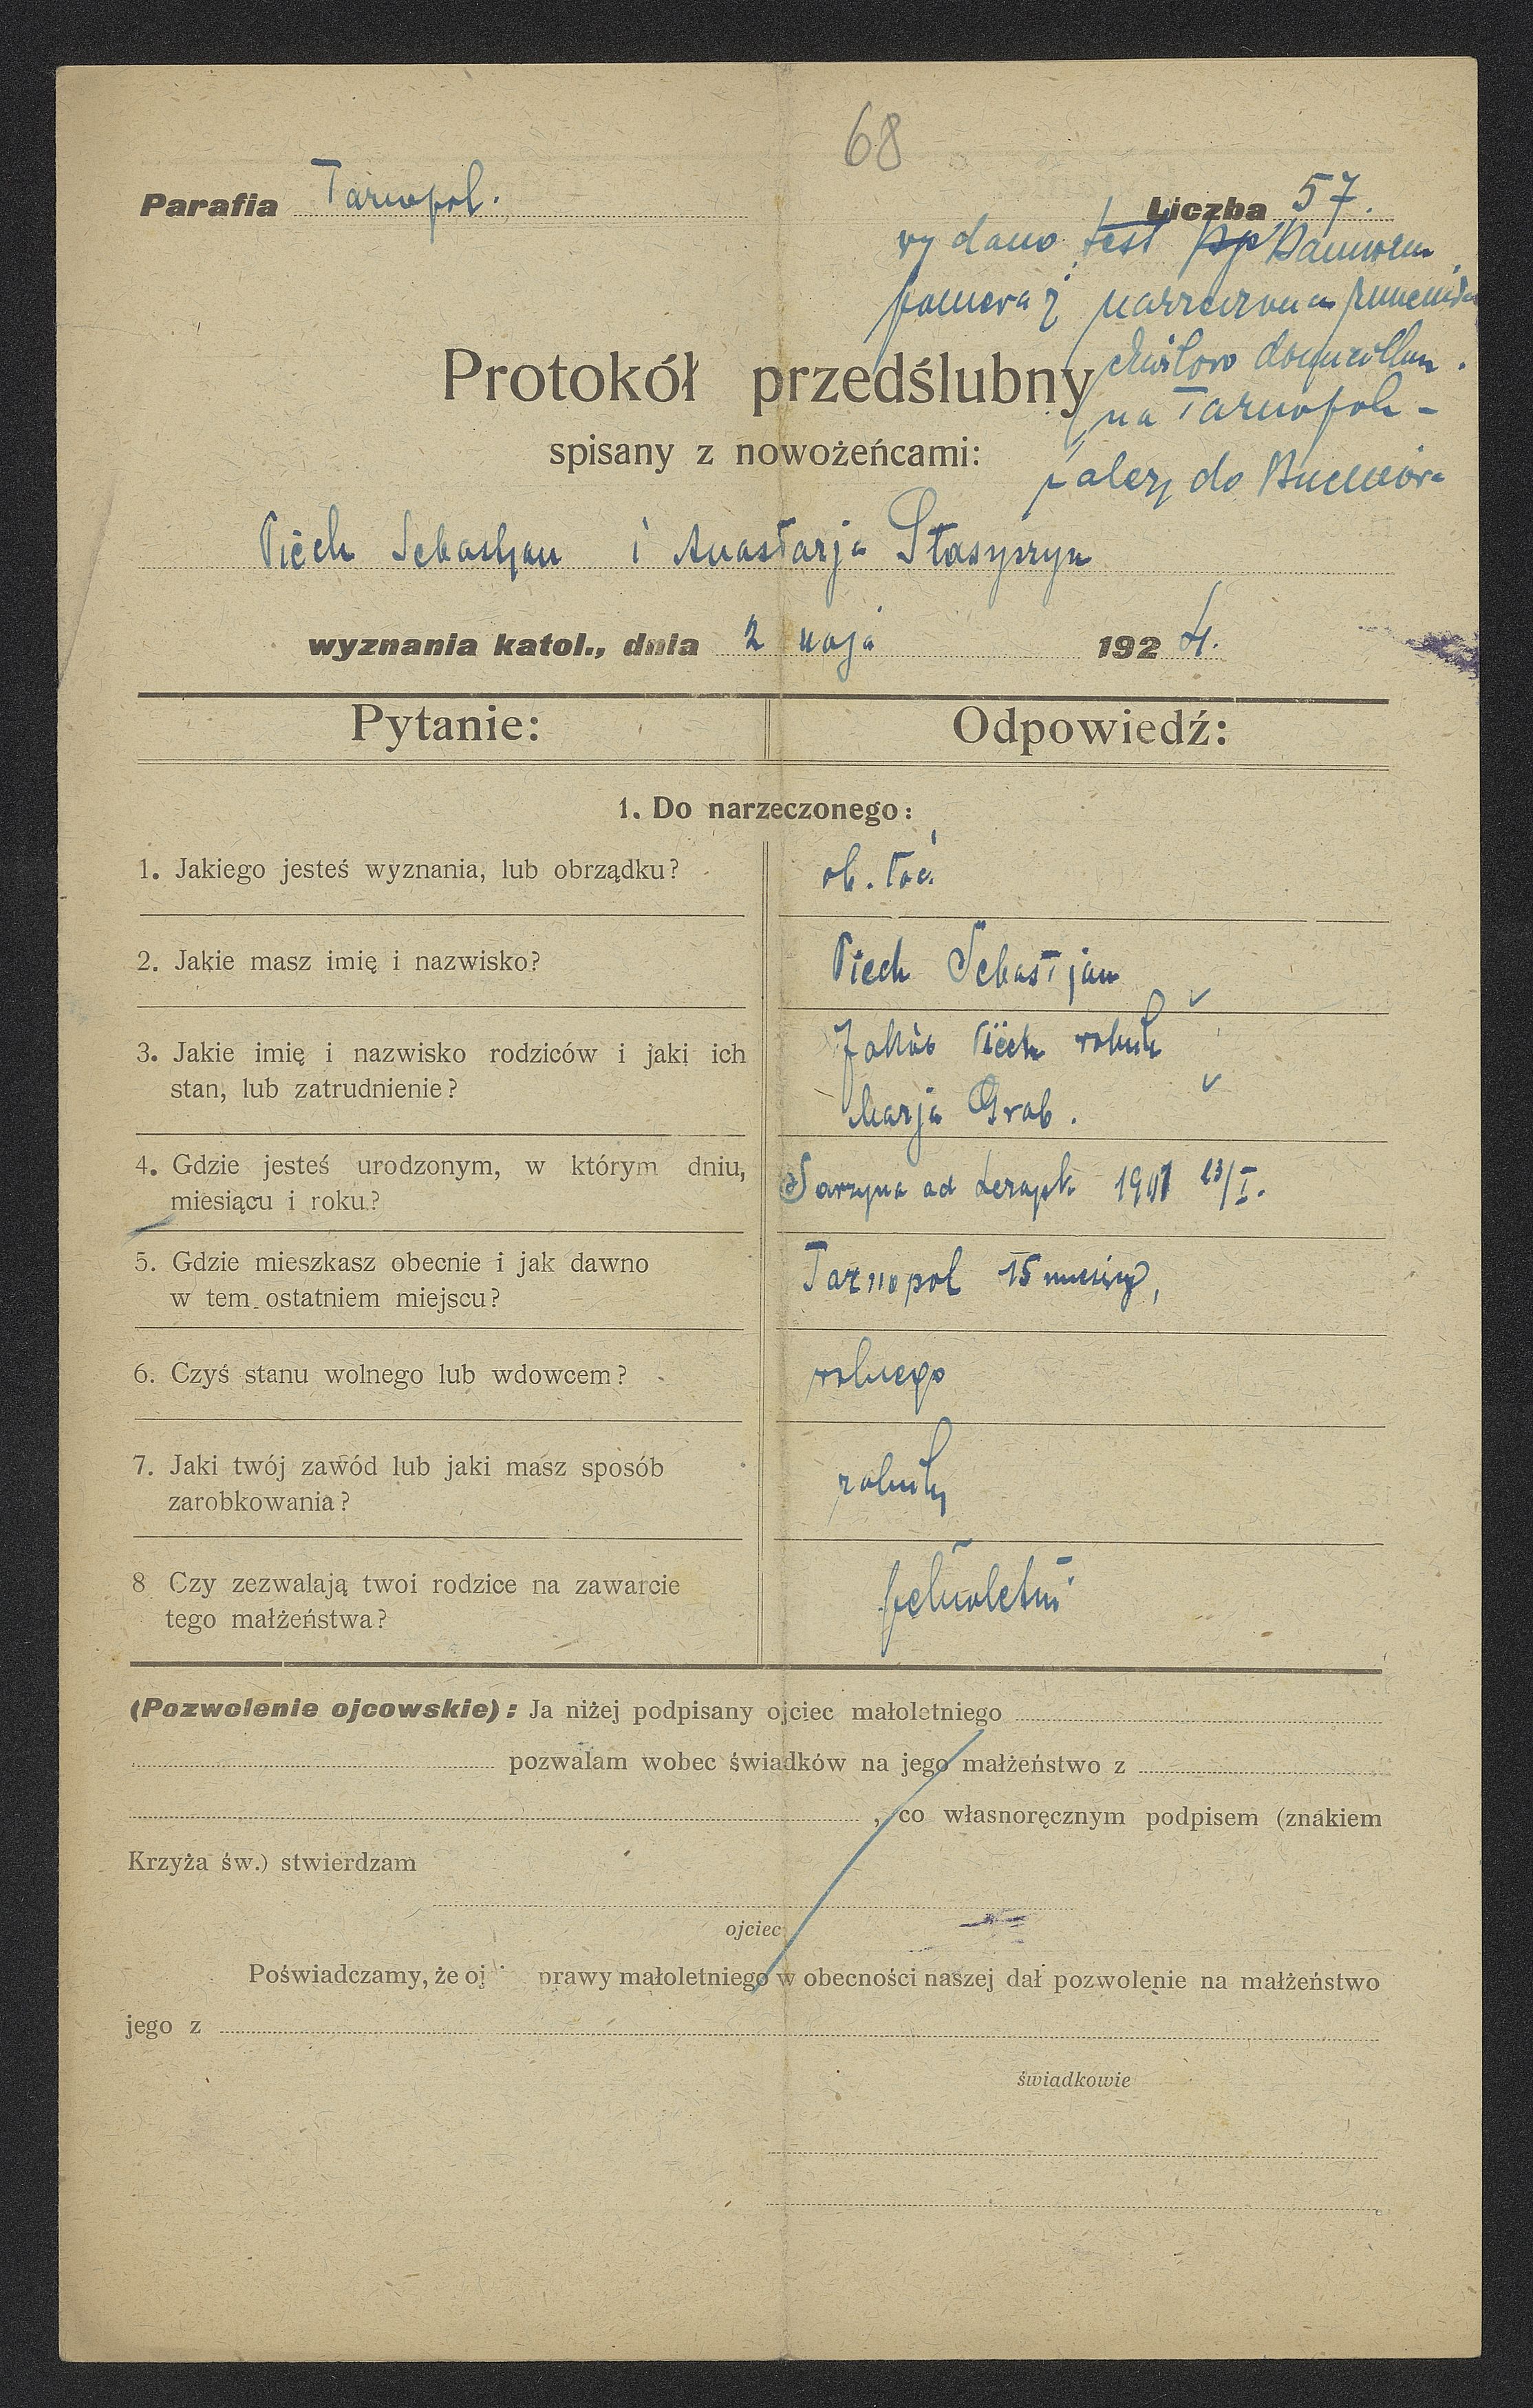 68
Parafia Tarnopol.
Liczba 57.
wydano test
narzeczona
na Tarnopol –
należy do
Protokół przedślubny
spisany z nowożeńcami:
Piech Sebastjan i Anastazja Stasyszyn
wyznania katol., dnia 2 maja 1924.
Pytanie: Odpowiedź:
1. Do narzeczonego:
1. Jakiego jesteś wyznania, lub obrządku? ob. łać.
2. Jakie masz imię i nazwisko? Piech Sebastjan
3. Jakie imię i nazwisko rodziców i jaki ich Jakób Piech
stan, lub zatrudnienie? Marja Grab.
4. Gdzie jesteś urodzonym, w którym dniu,
miesiącu i roku? Sarzyna ad 1901 23/I.
5. Gdzie mieszkasz obecnie i jak dawno
w tem ostatniem miejscu? Tarnopol 15 miesięcy,
6. Czyś stanu wolnego lub wdowcem? wolnego
7. Jaki twój zawód lub jaki masz sposób
zarobkowania?
8 Czy zezwalają twoi rodzice na zawarcie
tego małżeństwa? pełnoletni
(Pozwolenie ojcowskie): Ja niżej podpisany ojciec małoletniego
pozwalam wobec świadków na jego małżeństwo z
, co własnoręcznym podpisem (znakiem
Krzyża św.) stwierdzam
ojciec
Poświadczamy, że oj prawy małoletniego w obecności naszej dał pozwolenie na małżeństwo
jego z
świadkowie